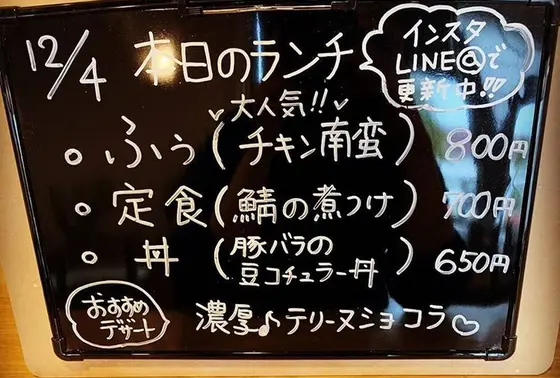 12/4 本日のランチ
インスタ
LINE@で
更新中!!
大人気!!
○ふぅ(チキン南蛮) 800円
○定食(鯖の煮つけ) 700円
○丼(豚バラの
豆コチュラー丼) 650円
おすすめ
デザート
濃厚♪テリーヌショコラ♡